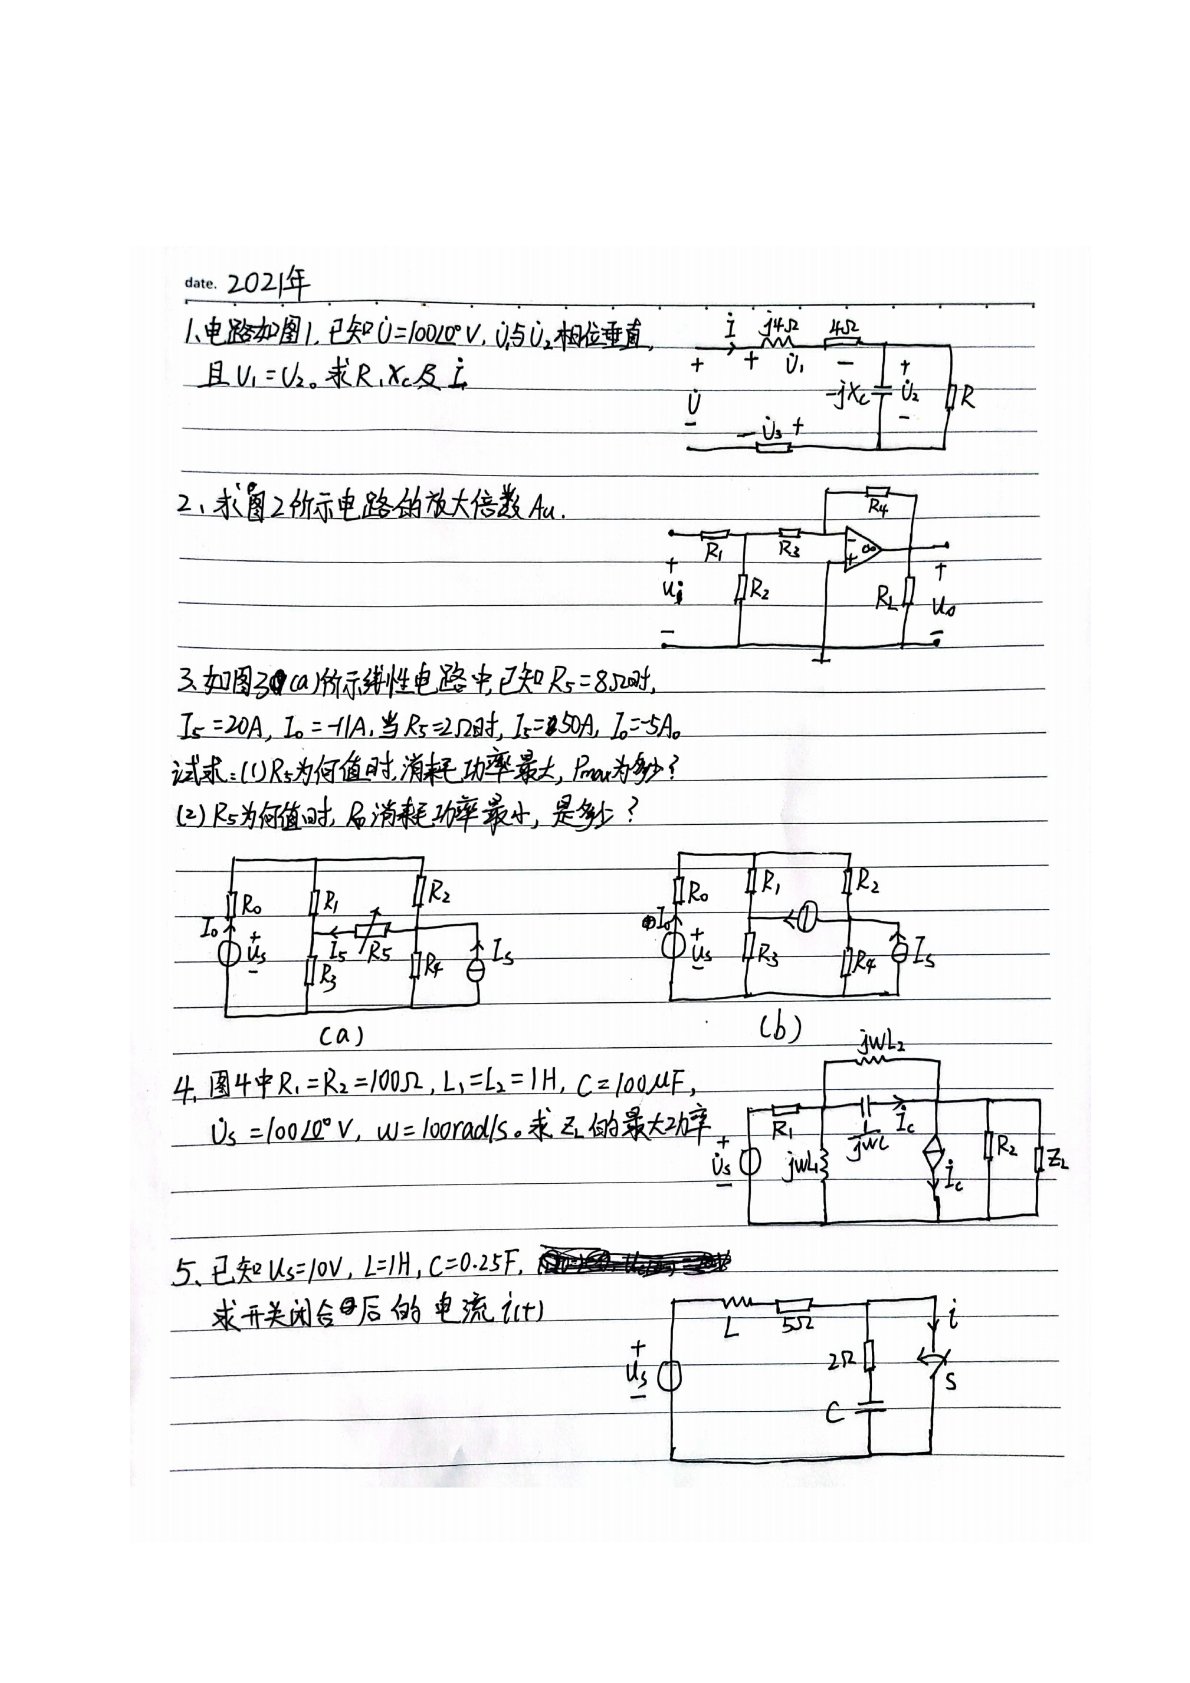 date. 2021年
1、电路如图1,已知U̇=100∠0°V, U̇₁与U̇₂相位垂直,
且U₁=U₂。求R,Xc及İ
İ j4Ω 4Ω
+ + U̇₁ - +
U̇ -jXc U̇₂ R
- - U̇₃ + -
2、求图2所示电路的放大倍数Au.
R4
R1 R3 - + ∞
+ ui - R2 RL + uo -
3、如图3(a)所示线性电路中,已知R5=8Ω时,
I5=20A, I0=-11A,当R5=2Ω时, I5=50A, I0=-5A。
试求:(1)R5为何值时,消耗功率最大, Pmax为多少?
(2) R5为何值时, R0消耗功率最小, 是多少?
R0 R1 R2
I0 + Us - I5 R5 Is
R3 R4
(a)
R0 R1 R2
I0 + Us - R3 R4 Is
(b)
4、图4中R1=R2=100Ω, L1=L2=1H, C=100μF,
U̇s=100∠0°V, ω=100rad/s。求ZL的最大功率
jωL2
R1 1/jωC İc
+ U̇s - jωL1 İc R2 ZL
5、已知Us=10V, L=1H, C=0.25F,
求开关闭合后的电流i(t)
L 5Ω i
+ Us - 2Ω S
C